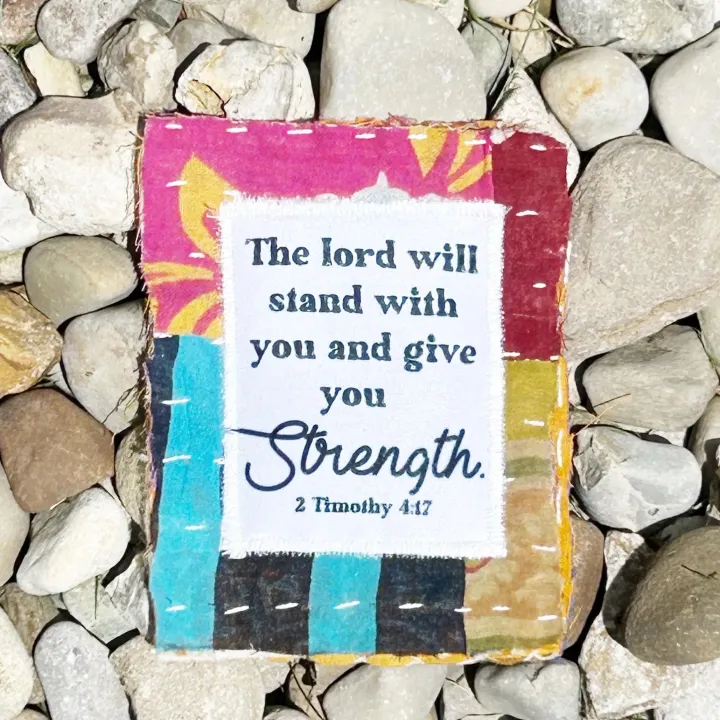 The lord will
stand with
you and give
you
Strength.
2 Timothy 4:17